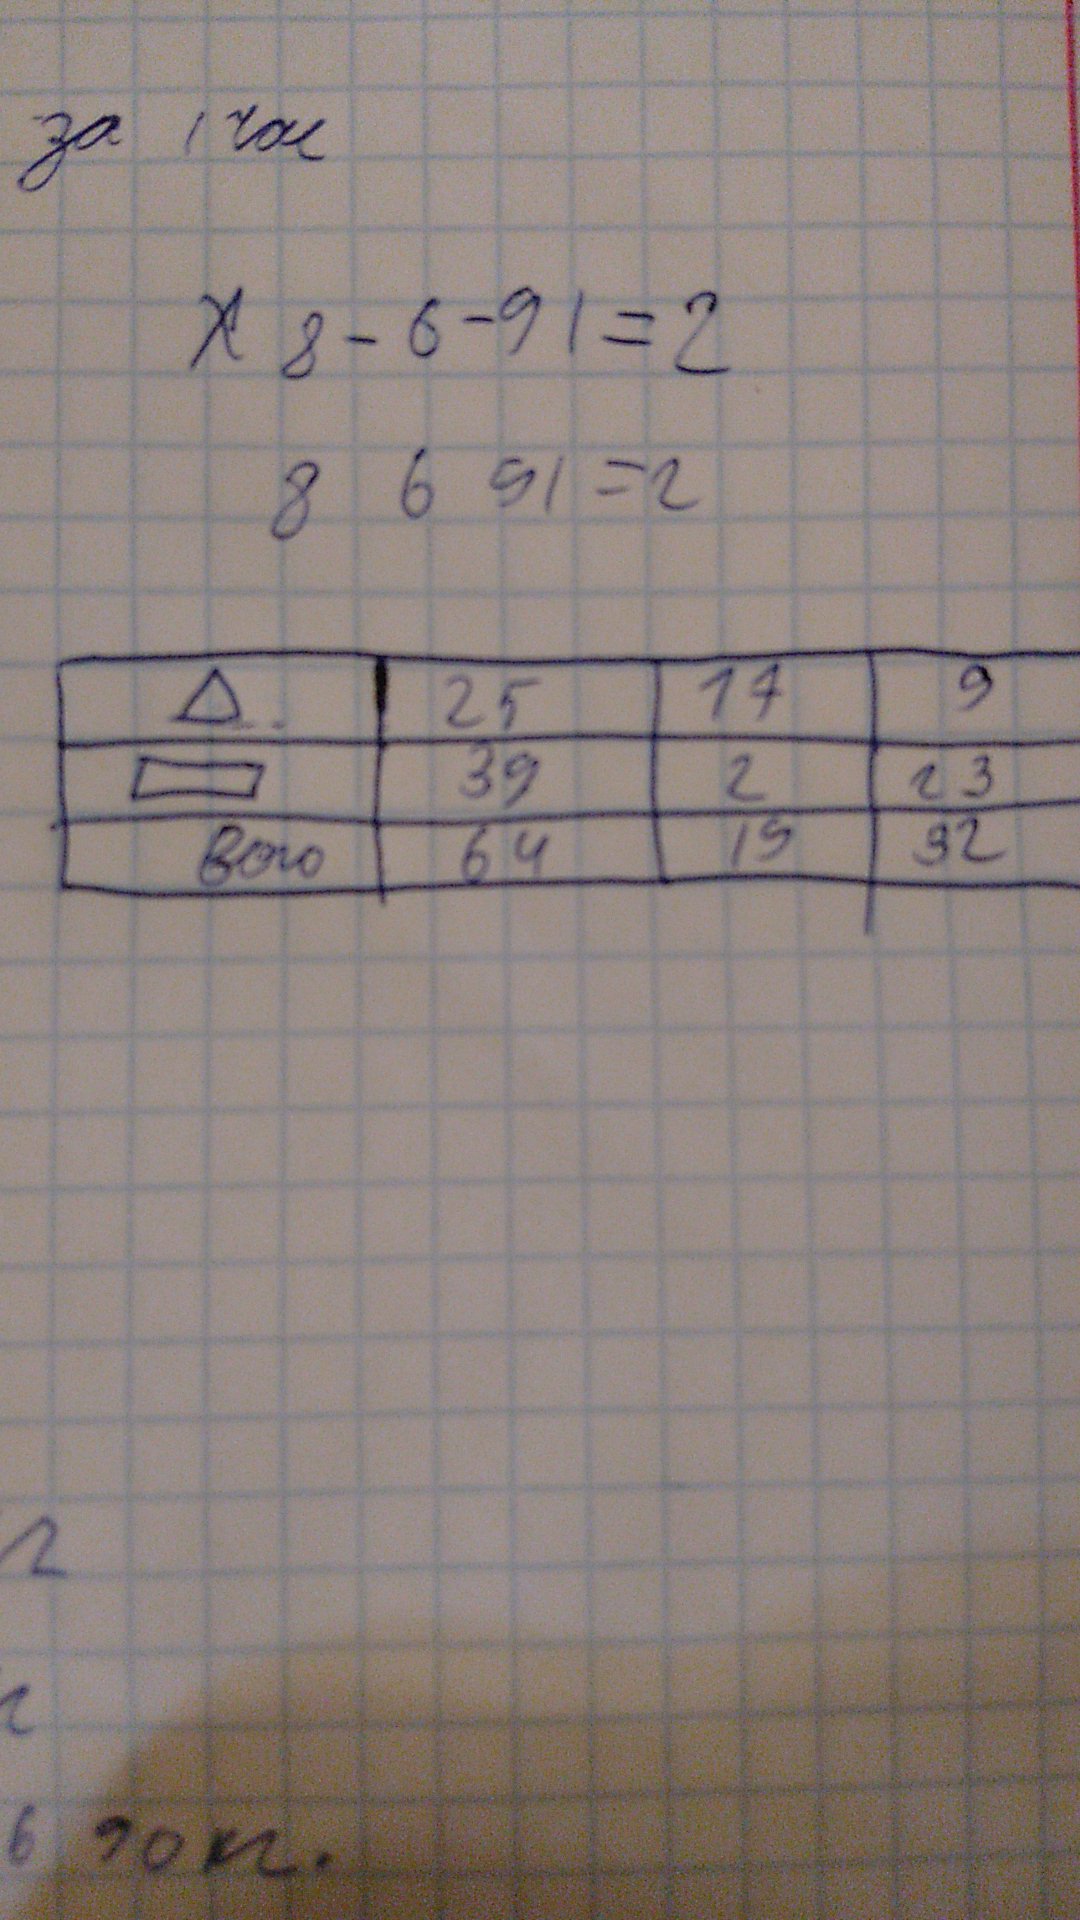 за 1 час
х 8 - 6 - 91 = 2
8 6 91 = 2
25 17 9
39 2 23
Всего 64 19 32
2
6 90 кг.